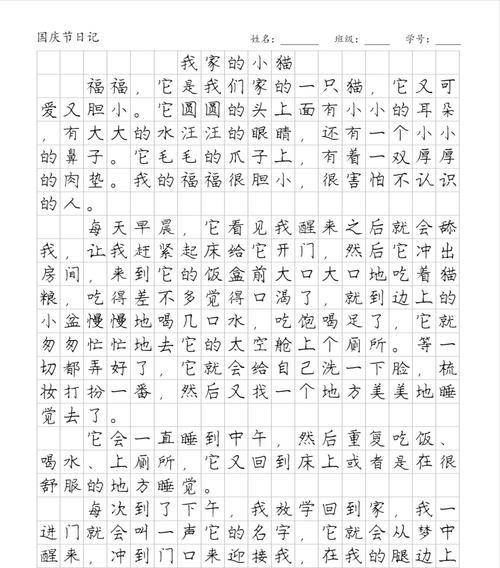 国庆节日记 姓名：______ 班级：____ 学号：____
我家的小猫
福福，它是我们家的一只猫，它又可
爱又胆小。它圆圆的头上面有小小的耳朵
，有大大的水汪汪的眼睛，还有一个小小
的鼻子。它毛毛的爪子上，有着一双厚厚
的肉垫。我的福福很胆小，很害怕不认识
的人。
每天早晨，它看见我醒来之后就会舔
我，让我赶紧起床给它开门，然后它冲出
房间，来到它的饭盆前大口大口地吃着猫
粮，吃得差不多觉得口渴了，就到边上的
小盆慢慢地喝几口水，吃饱喝足了，它就
匆匆忙忙地去它的太空舱上个厕所。等一
切都弄好了，它就会给自己洗一下脸，梳
妆打扮一番，然后又找一个地方美美地睡
觉去了。
它会一直睡到中午，然后重复吃饭、
喝水、上厕所，它又回到床上或者是在很
舒服的地方睡觉。
每次到了下午，我放学回到家，我一
进门就会叫一声它的名字，它就会从梦中
醒来，冲到门口来迎接我，在我的腿边上